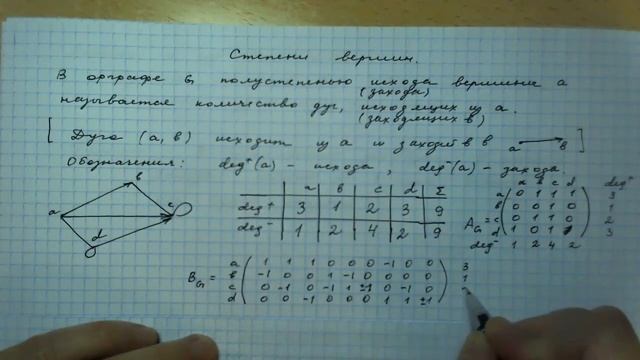 Степени вершин.
В орграфе G полустепенью исхода вершины a
(захода)
называется количество дуг, исходящих из a.
(заходящих в)
[ Дуга (a, b) исходит из a и заходит в b a b ]
Обозначения: deg⁺(a) - исхода, deg⁻(a) - захода.
a b c d
a b c d Σ
deg⁺ 3 1 2 3 9
deg⁻ 1 2 4 2 9
a b c d deg⁺
a 0 1 1 1 3
b 0 0 1 0 1
A_G = c 0 1 1 0 2
d 1 0 1 1 3
deg⁻ 1 2 4 2
B_G =
a 1 1 1 0 0 0 -1 0 0 3
b -1 0 0 1 -1 0 0 0 0 1
c 0 -1 0 -1 1 ±1 0 -1 0
d 0 0 -1 0 0 0 1 1 ±1